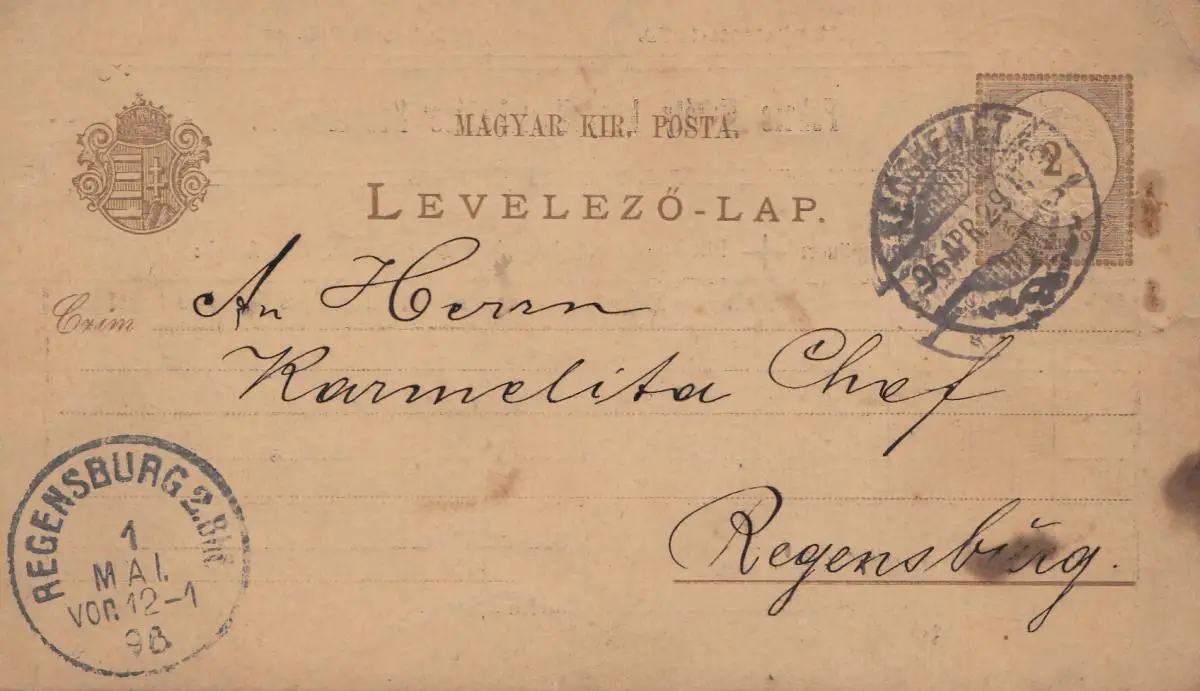 MAGYAR KIR. POSTA.
LEVELEZŐ-LAP.
2
KECSKEMÉT
96 APR. 29
Czim
An Herrn
Karmelita Chef
Regensburg.
REGENSBURG 2. Bhf
1
MAI.
Vor. 12-1
96